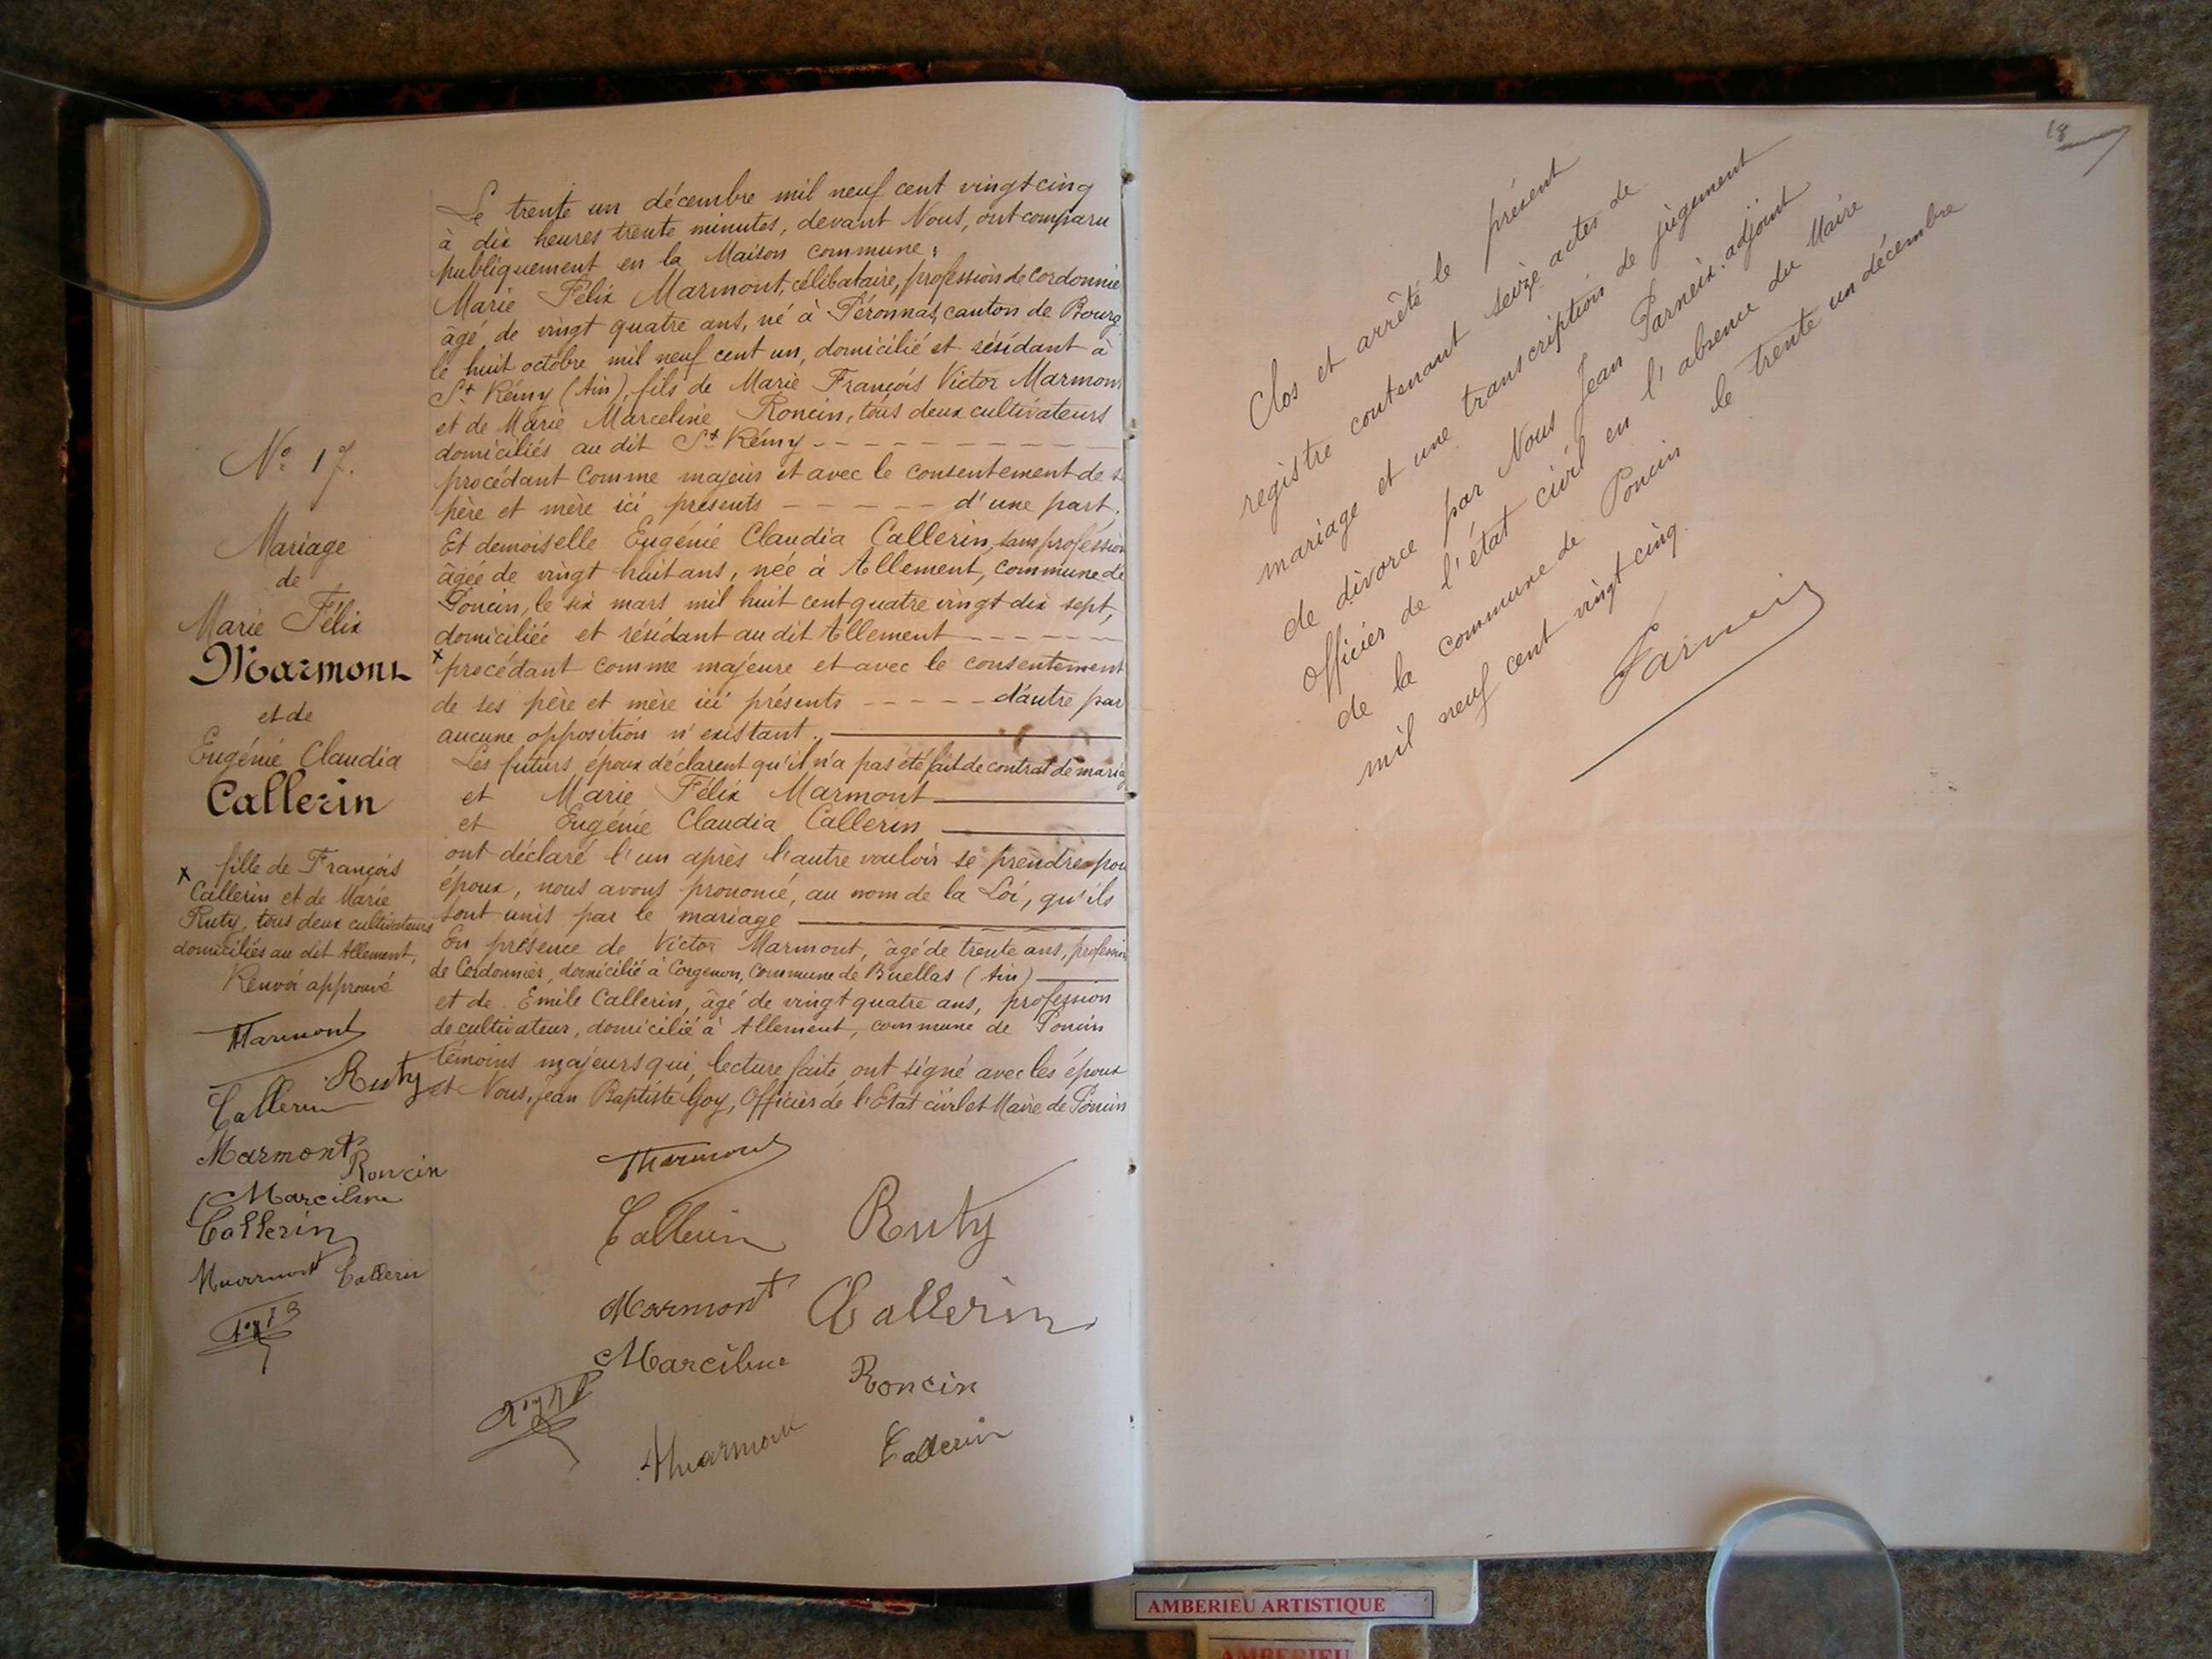 Le trente un décembre mil neuf cent vingt cinq
à dix heures trente minutes, devant Nous, ont comparu
publiquement en la Maison commune :
Marie Félix Marmont, célibataire, profession de cordonnie
âgé de vingt quatre ans, né à Péronnas, canton de Bourg
le huit octobre mil neuf cent un, domicilié et résidant à
St Rémy (Ain), fils de Marie François Victor Marmon
et de Marie Marceline Roncin, tous deux cultivateurs
domiciliés au dit St Rémy
procédant comme majeur et avec le consentement de s
père et mère ici présents d'une part.
Et demoiselle Eugénie Claudia Callerin, sans profession
âgée de vingt huit ans, née à Allement, commune de
Poncin, le six mars mil huit cent quatre vingt dix sept,
domiciliée et résidant au dit Allement
x procédant comme majeure et avec le consentement
de ses père et mère ici présents d'autre par
aucune opposition n'existant.
Les futurs époux déclarent qu'il n'a pas été fait de contrat de maria
et Marie Félix Marmont
et Eugénie Claudia Callerin
ont déclaré l'un après l'autre vouloir se prendre pou
époux, nous avons prononcé, au nom de la Loi, qu'ils
sont unis par le mariage
En présence de Victor Marmont, âgé de trente ans, profession
de Cordonnier, domicilié à Corgenon, Commune de Buellas (Ain)
et de Emile Callerin, âgé de vingt quatre ans, profession
de cultivateur, domicilié à Allement, commune de Poncin
témoins majeurs qui, lecture faite, ont signé avec les époux
et Nous, Jean Baptiste Goy, Officier de l'Etat civil et Maire de Poncin
Marmont
Callerin Ruty
Marmont Callerin
Marciline Roncin
Marmont Callerin
No 17.
Mariage
de
Marie Félix
Marmont
et de
Eugénie Claudia
Callerin
x fille de François
Callerin et de Marie
Ruty, tous deux cultivateurs
domiciliés au dit Allement,
Renvoi approuvé
Marmont
Ruty
Callerin
Marmont
Roncin
Marciline
Callerin
Marmont Callerin
18
Clos et arrêté le présent
registre contenant seize actes de
mariage et une transcription de jugement
de divorce par Nous Jean Parneix, adjoint
officier de l'état civil en l'absence du Maire
de la commune de Poncin le trente un décembre
mil neuf cent vingt cinq.
Parneix
AMBERIEU ARTISTIQUE
AMBERIEU